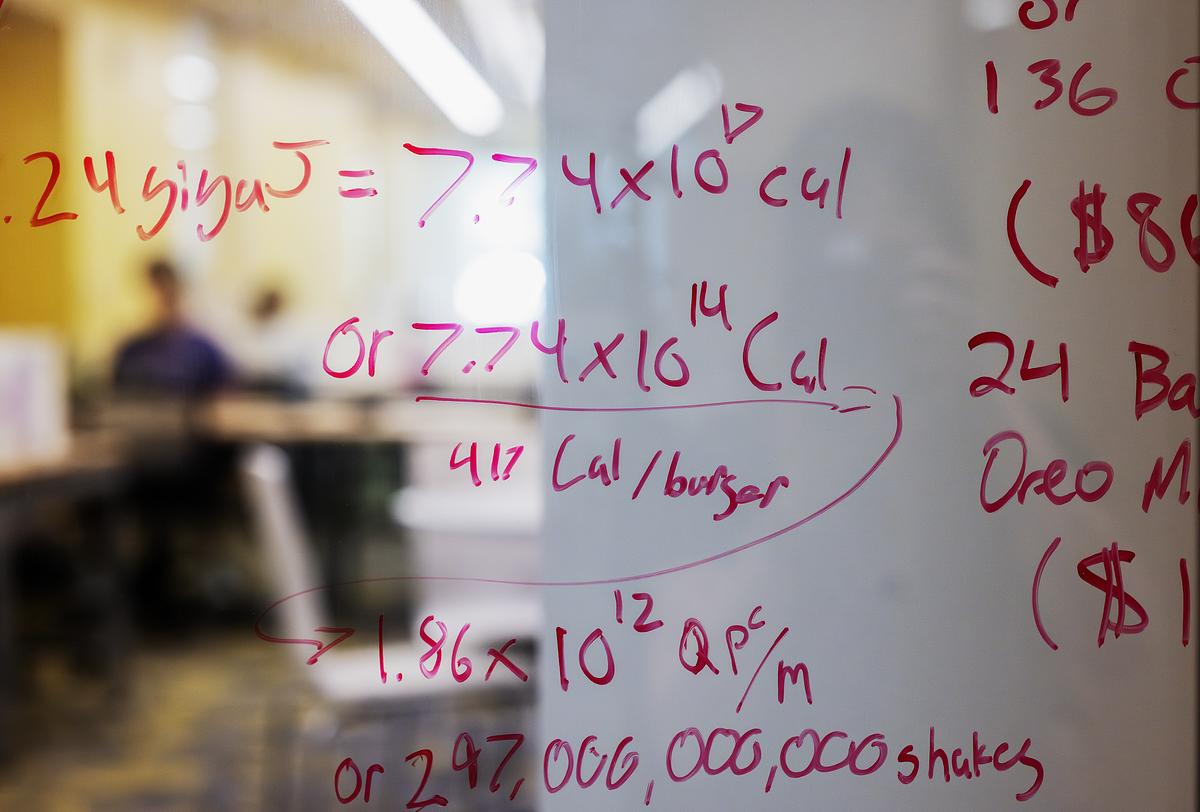 .24 gigaJ = 7.74x10^17 cal
or 7.74x10^14 Cal =
417 Cal/burger
1.86x10^12 QPc/m
or 297,000,000,000 shakes
or
136 C
($86
24 Ba
Oreo M
($1